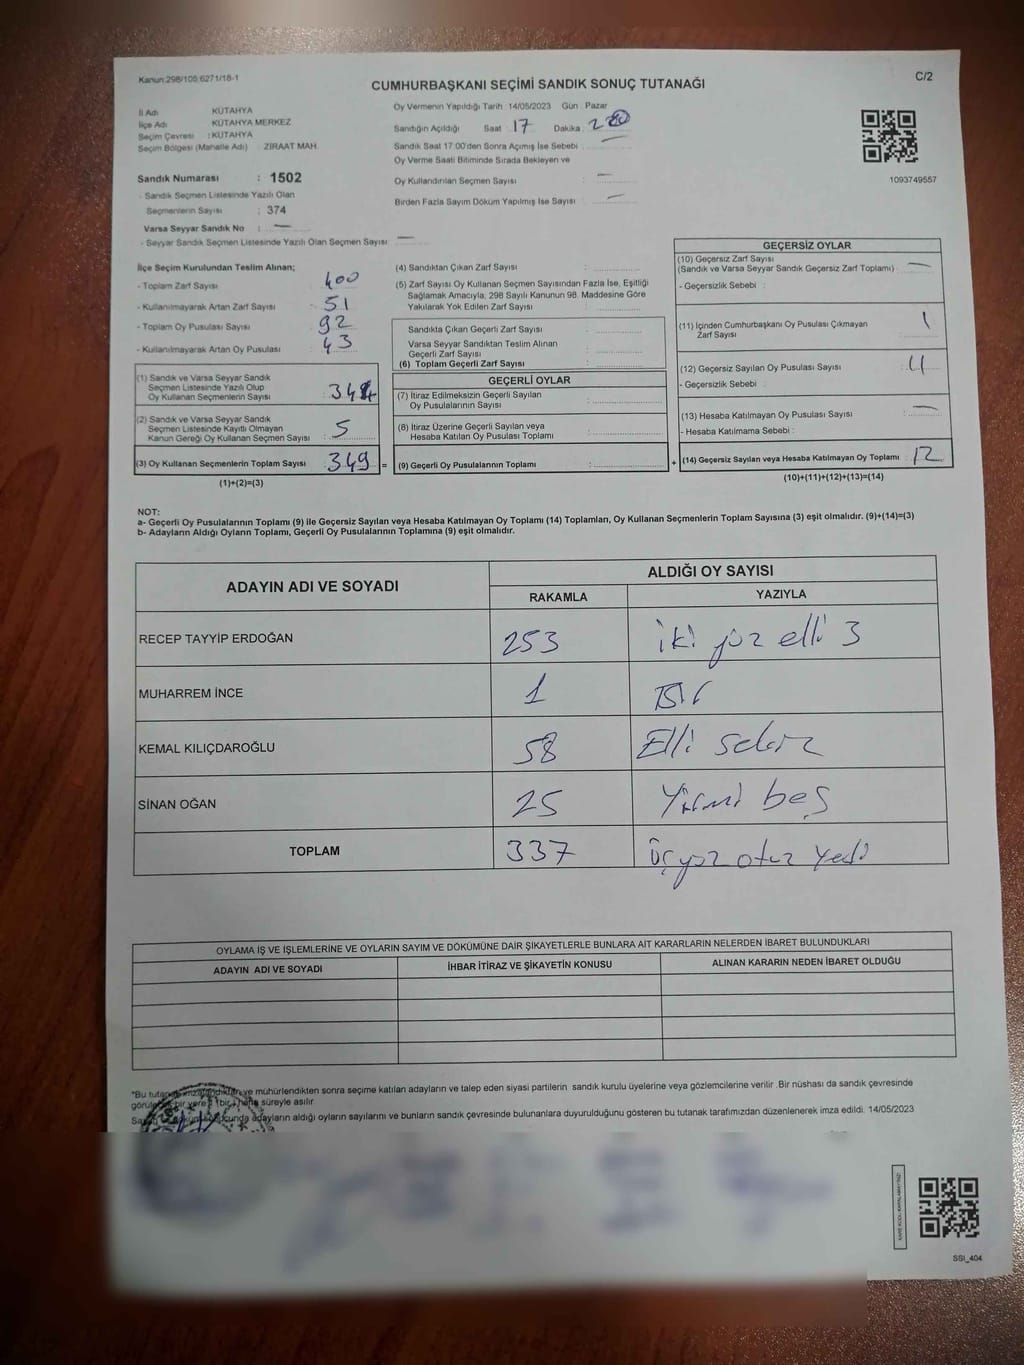 Kanun:298/105;6271/18-1
C/2
CUMHURBAŞKANI SEÇİMİ SANDIK SONUÇ TUTANAĞI
İl Adı KÜTAHYA
İlçe Adı KÜTAHYA MERKEZ
Seçim Çevresi : KÜTAHYA
Seçim Bölgesi (Mahalle Adı) : ZİRAAT MAH.
Oy Vermenin Yapıldığı Tarih :14/05/2023 Gün : Pazar
Sandığın Açıldığı Saat : 17 Dakika :
Sandık Saat 17:00'den Sonra Açımış İse Sebebi :
Oy Verme Saati Bitiminde Sırada Bekleyen ve
Oy Kullandırılan Seçmen Sayısı : —
Birden Fazla Sayım Döküm Yapılmış İse Sayısı : —
1093749557
Sandık Numarası : 1502
- Sandık Seçmen Listesinde Yazılı Olan
Seçmenlerin Sayısı : 374
Varsa Seyyar Sandık No : —
- Seyyar Sandık Seçmen Listesinde Yazılı Olan Seçmen Sayısı: —
İlçe Seçim Kurulundan Teslim Alınan;
- Toplam Zarf Sayısı : 400
- Kullanılmayarak Artan Zarf Sayısı : 51
- Toplam Oy Pusulası Sayısı : 92
- Kullanılmayarak Artan Oy Pusulası : 43
(1) Sandık ve Varsa Seyyar Sandık
Seçmen Listesinde Yazılı Olup
Oy Kullanan Seçmenlerin Sayısı : 344
(2) Sandık ve Varsa Seyyar Sandık
Seçmen Listesinde Kayıtlı Olmayan
Kanun Gereği Oy Kullanan Seçmen Sayısı : 5
(3) Oy Kullanan Seçmenlerin Toplam Sayısı : 349 =
(1)+(2)=(3)
(4) Sandıktan Çıkan Zarf Sayısı :
(5) Zarf Sayısı Oy Kullanan Seçmen Sayısından Fazla İse, Eşitliği
Sağlamak Amacıyla, 298 Sayılı Kanunun 98. Maddesine Göre
Yakılarak Yok Edilen Zarf Sayısı :
Sandıkta Çıkan Geçerli Zarf Sayısı :
Varsa Seyyar Sandıktan Teslim Alınan
Geçerli Zarf Sayısı :
(6) Toplam Geçerli Zarf Sayısı :
GEÇERLİ OYLAR
(7) İtiraz Edilmeksizin Geçerli Sayılan
Oy Pusulalarının Sayısı :
(8) İtiraz Üzerine Geçerli Sayılan veya
Hesaba Katılan Oy Pusulası Toplamı :
(9) Geçerli Oy Pusulalarının Toplamı : +
GEÇERSİZ OYLAR
(10) Geçersiz Zarf Sayısı
(Sandık ve Varsa Seyyar Sandık Geçersiz Zarf Toplamı) : —
- Geçersizlik Sebebi :
(11) İçinden Cumhurbaşkanı Oy Pusulası Çıkmayan
Zarf Sayısı : 1
(12) Geçersiz Sayılan Oy Pusulası Sayısı : 11
- Geçersizlik Sebebi :
(13) Hesaba Katılmayan Oy Pusulası Sayısı : —
- Hesaba Katılmama Sebebi :
(14) Geçersiz Sayılan veya Hesaba Katılmayan Oy Toplamı : 12
(10)+(11)+(12)+(13)=(14)
NOT:
a- Geçerli Oy Pusulalarının Toplamı (9) ile Geçersiz Sayılan veya Hesaba Katılmayan Oy Toplamı (14) Toplamları, Oy Kullanan Seçmenlerin Toplam Sayısına (3) eşit olmalıdır. (9)+(14)=(3)
b- Adayların Aldığı Oyların Toplamı, Geçerli Oy Pusulalarının Toplamına (9) eşit olmalıdır.
ADAYIN ADI VE SOYADI ALDIĞI OY SAYISI
RAKAMLA YAZIYLA
RECEP TAYYİP ERDOĞAN 253 iki yüz elli 3
MUHARREM İNCE 1 Bir
KEMAL KILIÇDAROĞLU 58 Elli sekiz
SİNAN OĞAN 25 Yirmi beş
TOPLAM 337 üçyüz otuz yedi
OYLAMA İŞ VE İŞLEMLERİNE VE OYLARIN SAYIM VE DÖKÜMÜNE DAİR ŞİKAYETLERLE BUNLARA AİT KARARLARIN NELERDEN İBARET BULUNDUKLARI
ADAYIN ADI VE SOYADI İHBAR İTİRAZ VE ŞİKAYETİN KONUSU ALINAN KARARIN NEDEN İBARET OLDUĞU
*Bu ve mühürlendikten sonra seçime katılan adayların ve talep eden siyasi partilerin sandık kurulu üyelerine veya gözlemcilerine verilir .Bir nüshası da sandık çevresinde
bir yere (bir) süreyle asılır.
adayların aldığı oyların sayılarını ve bunların sandık çevresinde bulunanlara duyurulduğunu gösteren bu tutanak tarafımızdan düzenlenerek imza edildi. 14/05/2023
SSI_404